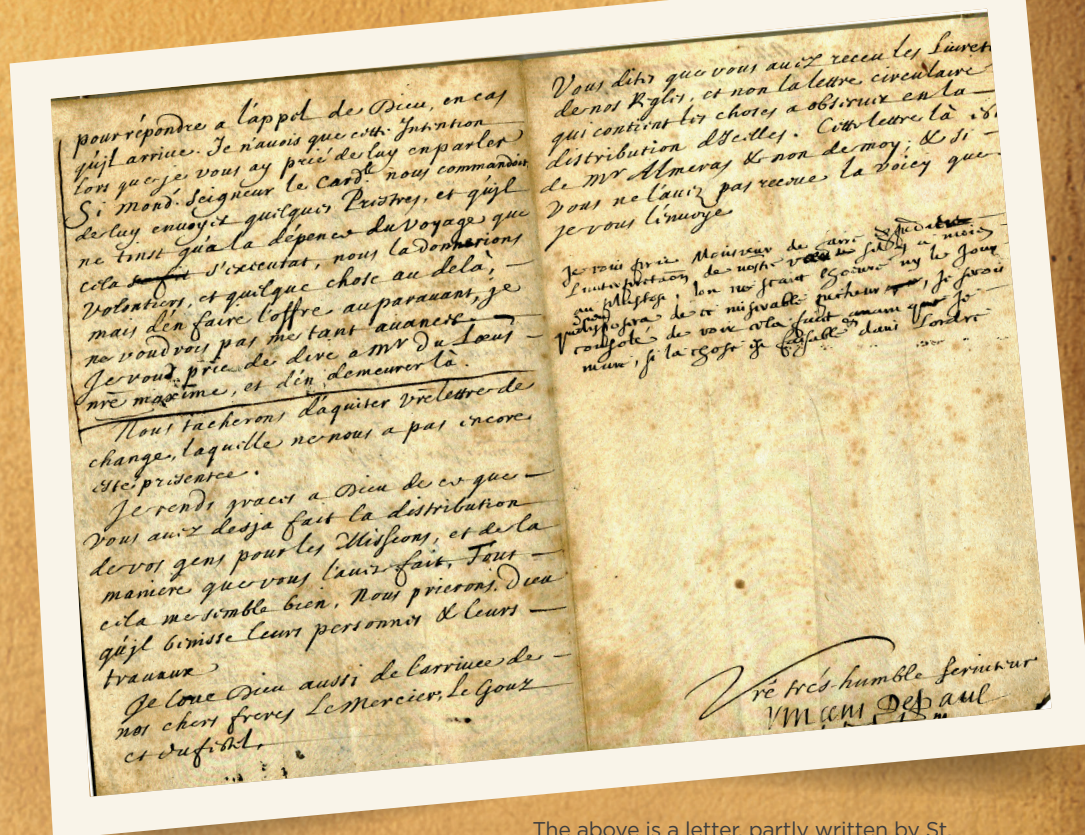 pour répondre a l'appel de Dieu, en cas
qu'jl arriue. Je n'auois que cette Intention
lors que je vous ay prié de luy en parler
Si mond. Seigneur le Card.al nous commandoit
de luy enuoyer quelques Prestres, et qu'jl
ne tinst qu'a la dépence du Voyage que
cela s'executat, nous la donnerions
Volontiers, et quelque chose au delà;
mais d'en faire l'offre auparauant, je
ne voudrois pas me tant auancer
Je vous prie de dire a Mr du
nre maxime, et d'en demeurer là.
Nous tacherons d'aquiter vre lettre de
change, laquelle ne nous a pas encore
esté presentée.
Je rends graces a Dieu de ce que
vous auez desja fait la distribution
de vos gens pour les Missions, et de la
maniere que vous l'auez fait. Tout
cela me semble bien. Nous prierons Dieu
qu'jl benisse leurs personnes & leurs
trauaux
Je loue Dieu aussi de l'arriuée de
nos chers freres Le Mercier, Le Gouz
et
Vous dites que vous auez receu les Liurets
de nos Regles, et non la lettre circulaire
qui contient les choses a obseruer en la
distribution d'Jcelles. Cette lettre là est
de Mr Almeras & non de moy; & si
vous ne l'auez pas receue la voicy que
je vous l'enuoye
Je vous prie Monsieur de
L'interpretaon de nostre
lon ne scait l'heure ny le Jour
de ce miserable pecheur, je serois
consolé de voir cela auant que je
meure, si la chose est faisable dans l'ordre
Vre trés-humble seruiteur
Vincent Depaul
The above is a letter, partly written by St